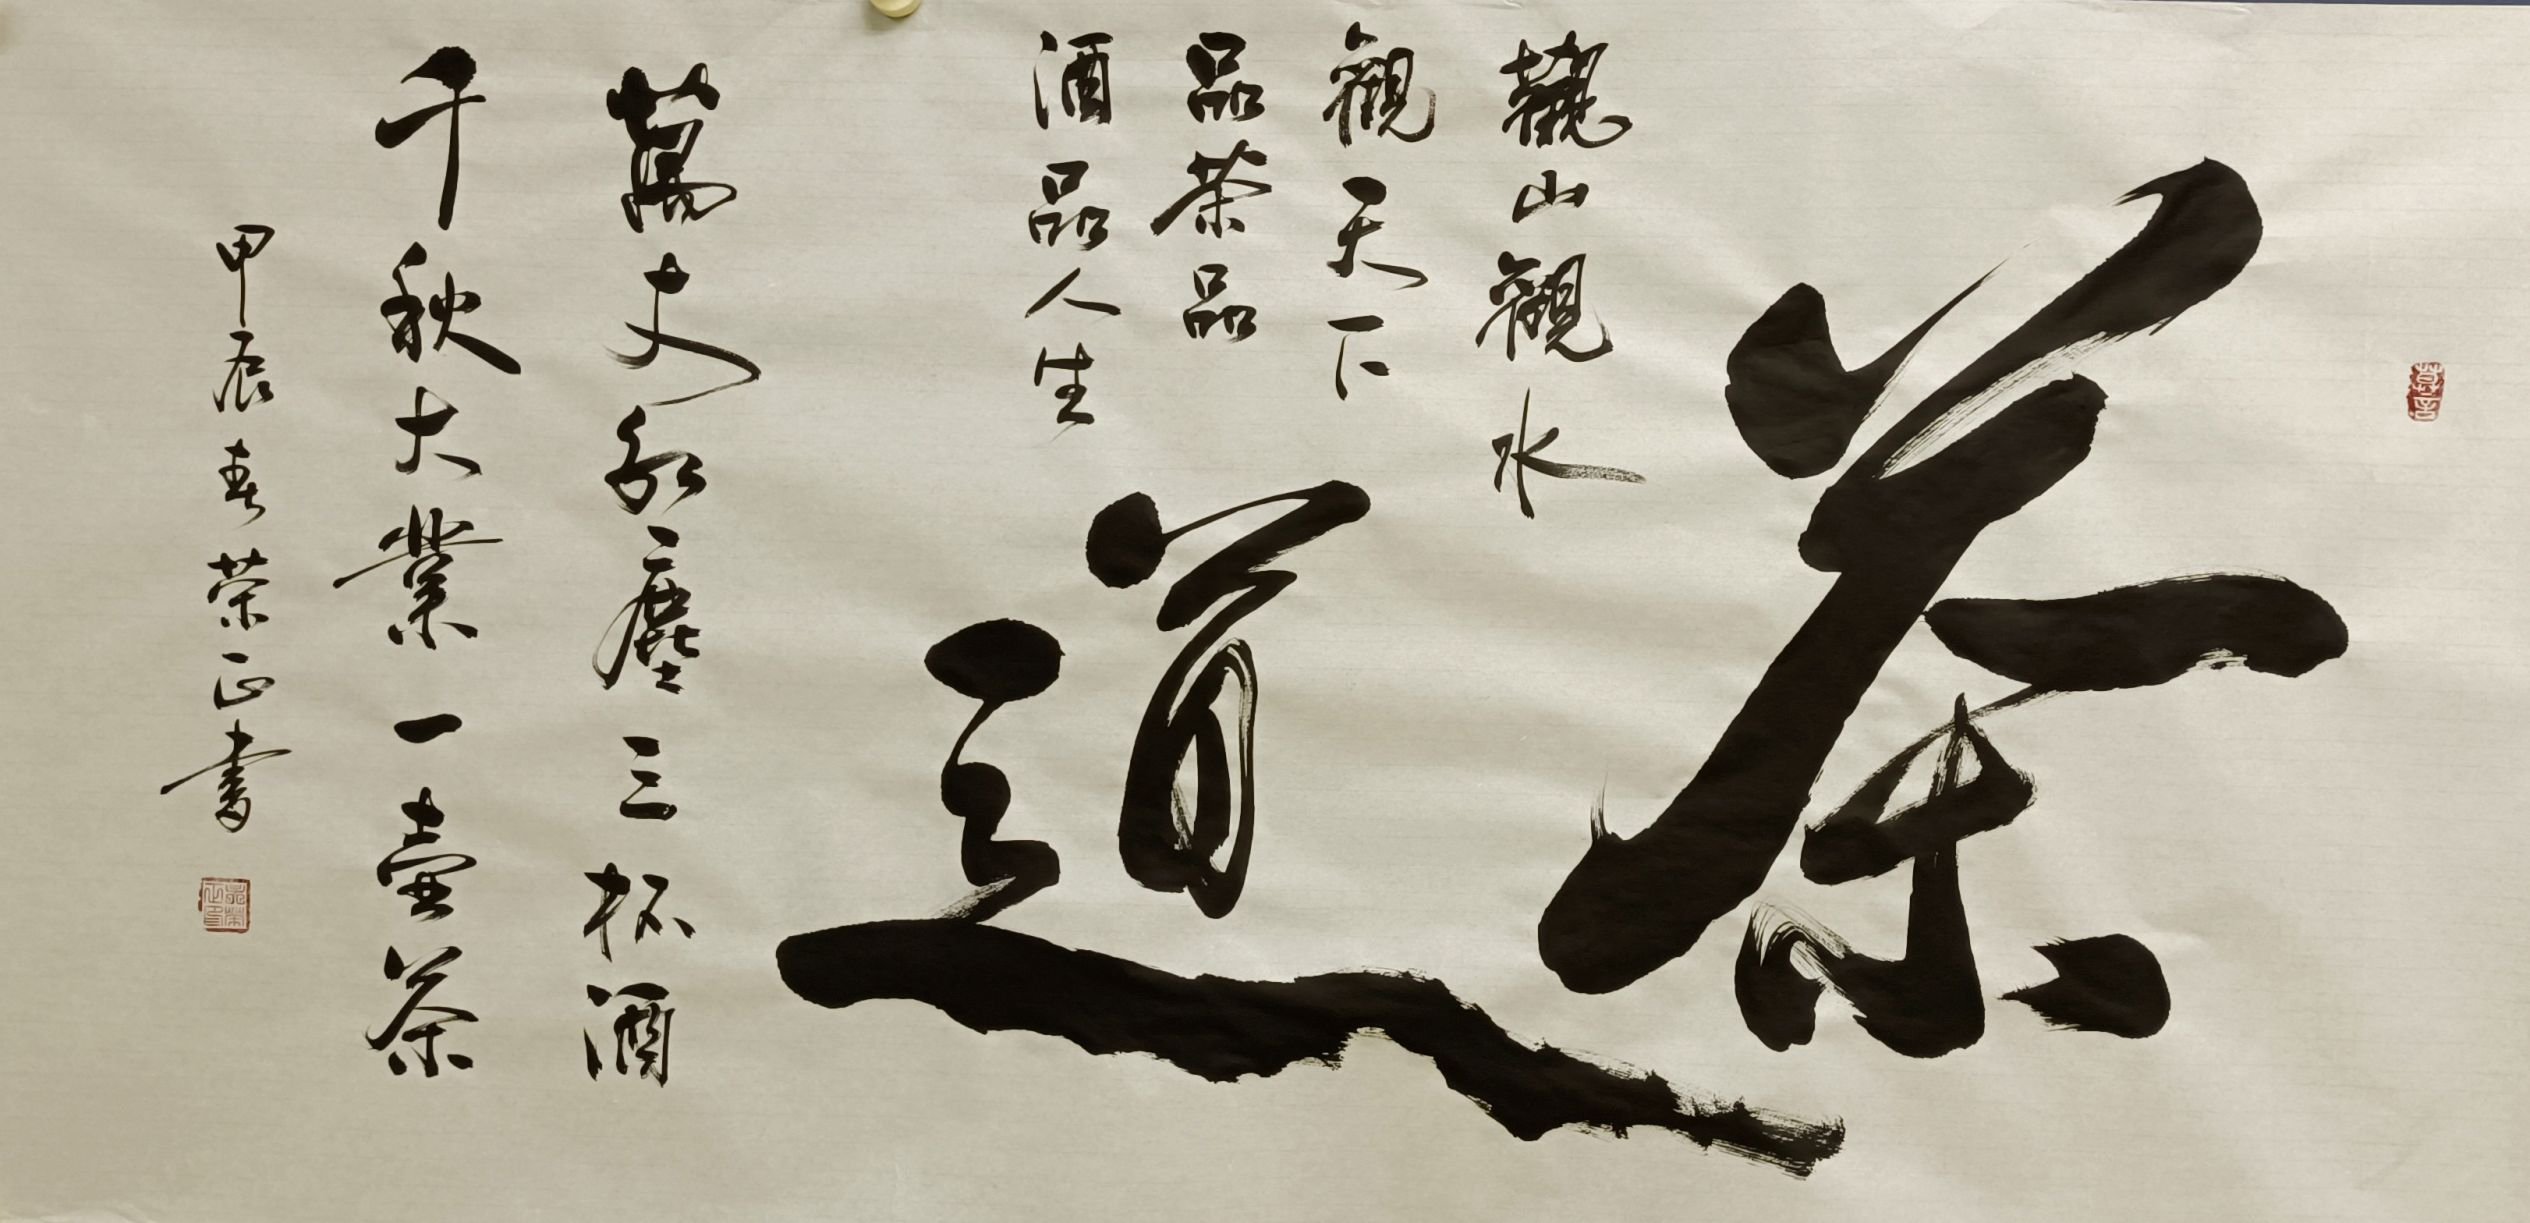 茶道
觀山觀水
觀天下
品茶品
酒品人生
萬丈紅塵三杯酒
千秋大業一壺茶
甲辰春荣正書